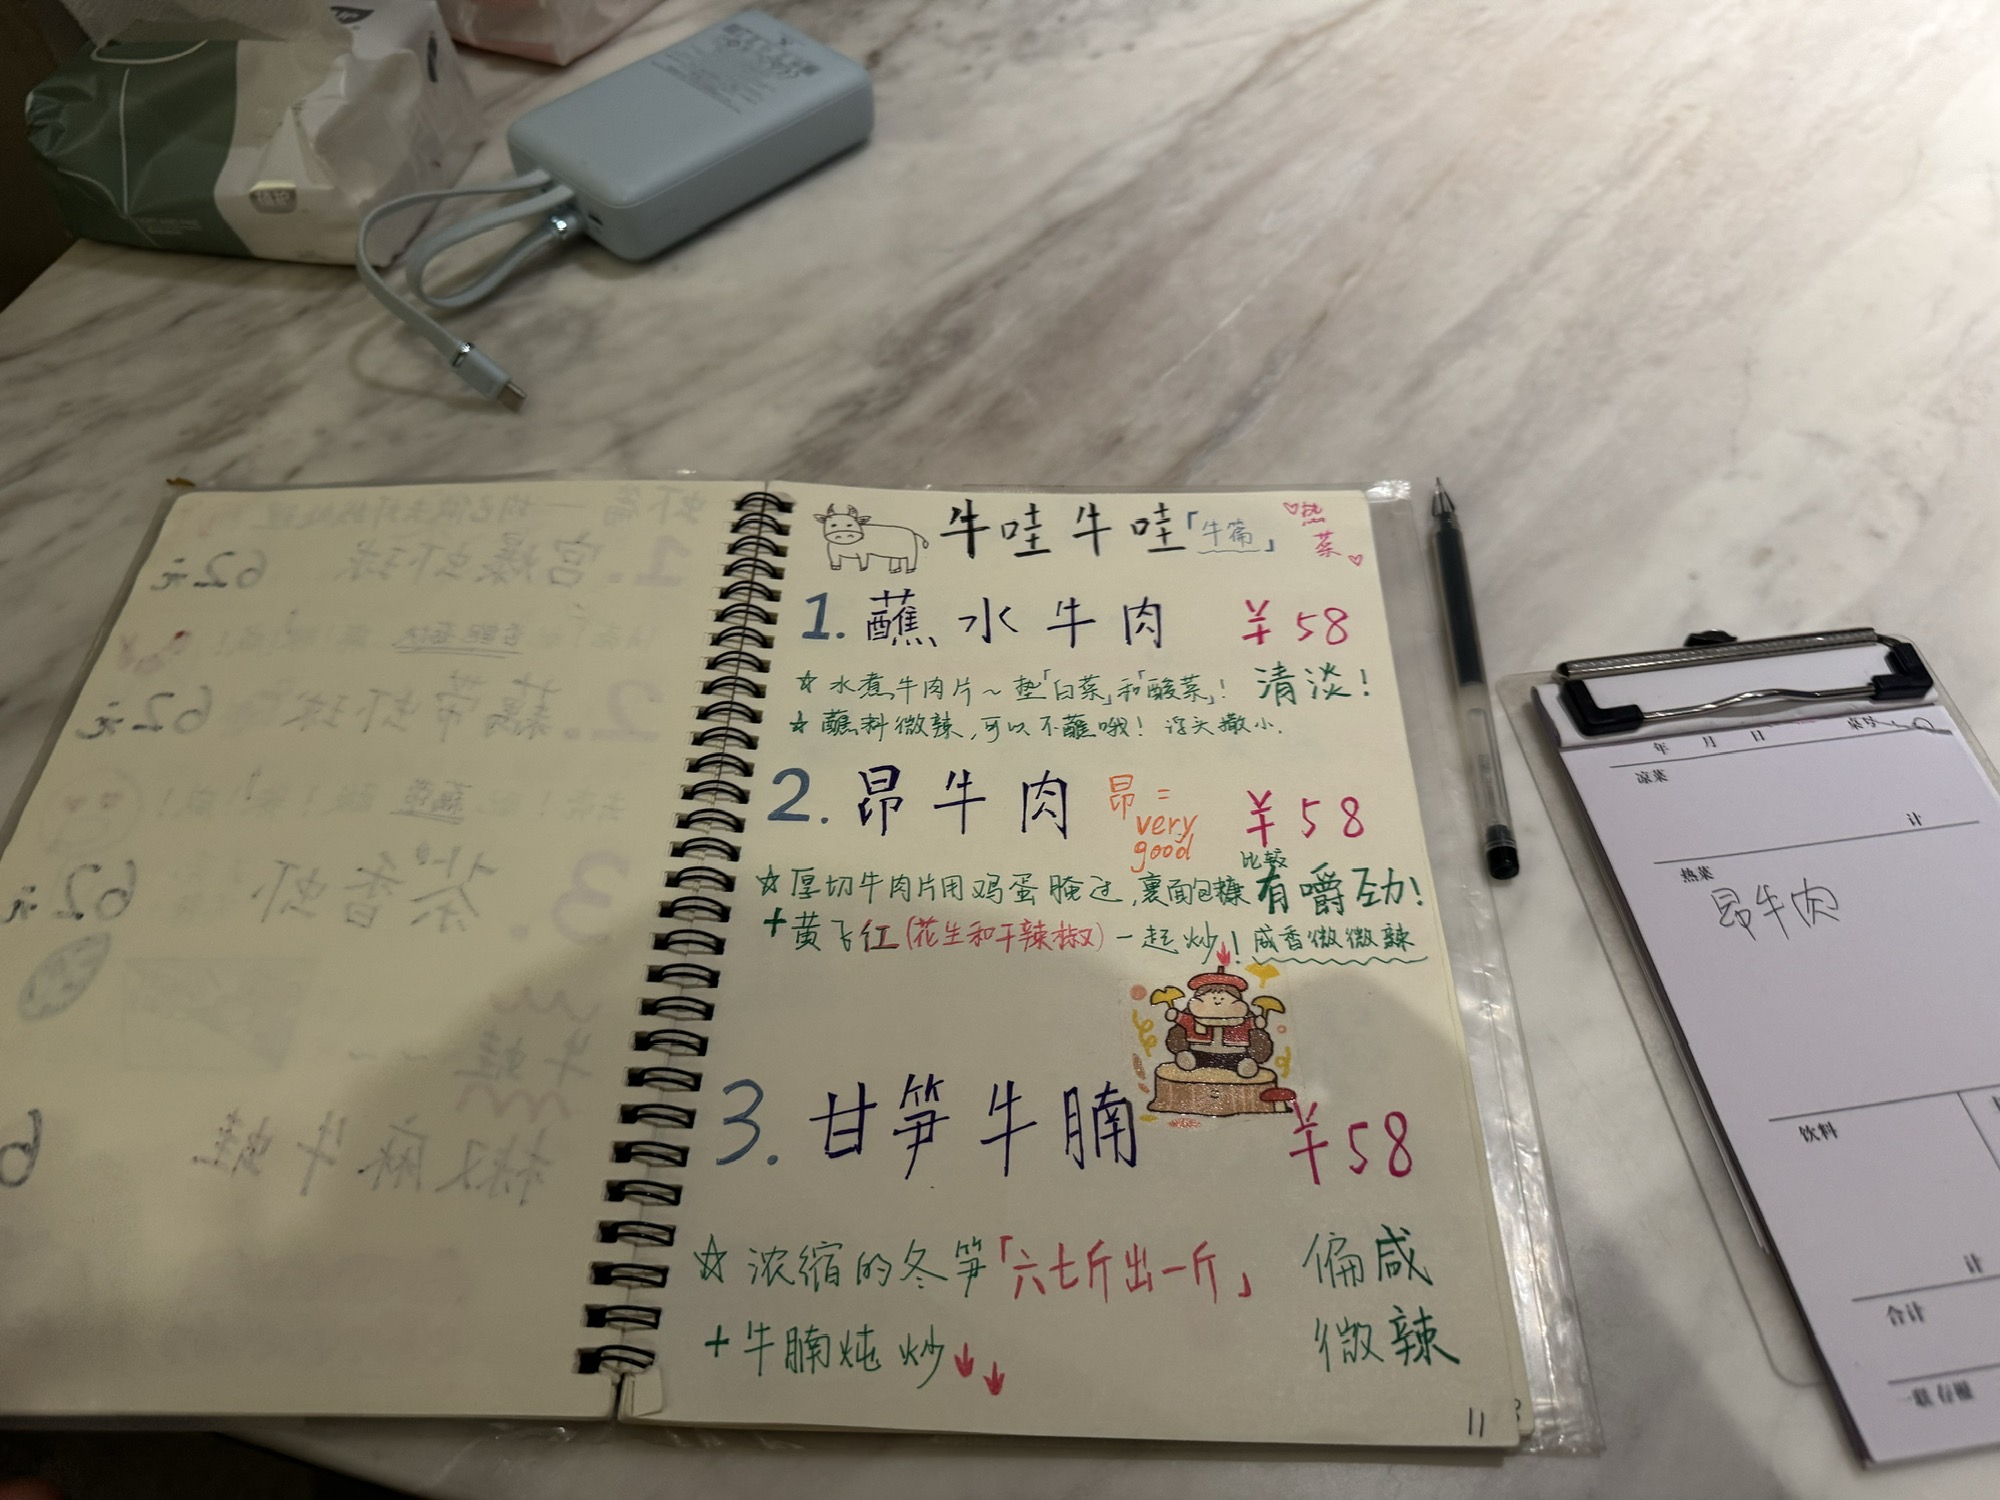 牛哇牛哇「牛篇」
热菜
1. 蘸水牛肉 ¥58
☆ 水煮牛肉片~垫「白菜」和「酸菜」! 清淡!
☆ 蘸料微辣,可以不蘸哦! 浇头撒小.
2. 昂牛肉 昂= very good ¥58
☆ 厚切牛肉片用鸡蛋腌过,裹面包糠 比较有嚼劲!
+ 黄飞红(花生和干辣椒)一起炒! 咸香微微辣
3. 甘笋牛腩 ¥58
☆ 浓缩的冬笋「六七斤出一斤」 偏咸
+ 牛腩炖炒 微辣
11
年 月 日
凉菜
计
热菜
昂牛肉
饮料
计
合计
一联存根
1. 宫爆虾球 62元
2. 藕带虾球 62元
3. 茶香虾 62元
牛蛙
椒麻牛蛙 6